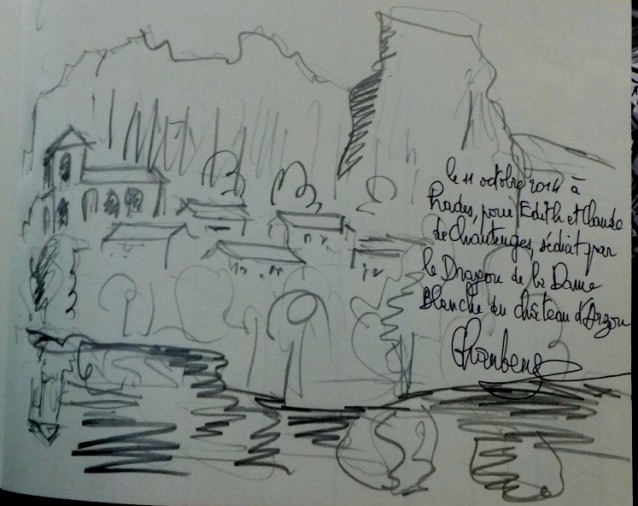 le 11 octobre 2014 à
Prades, pour Edith et Claude
de Chanteuges, séduit par
le Dragon de la Dame
Blanche du château d'Arzon